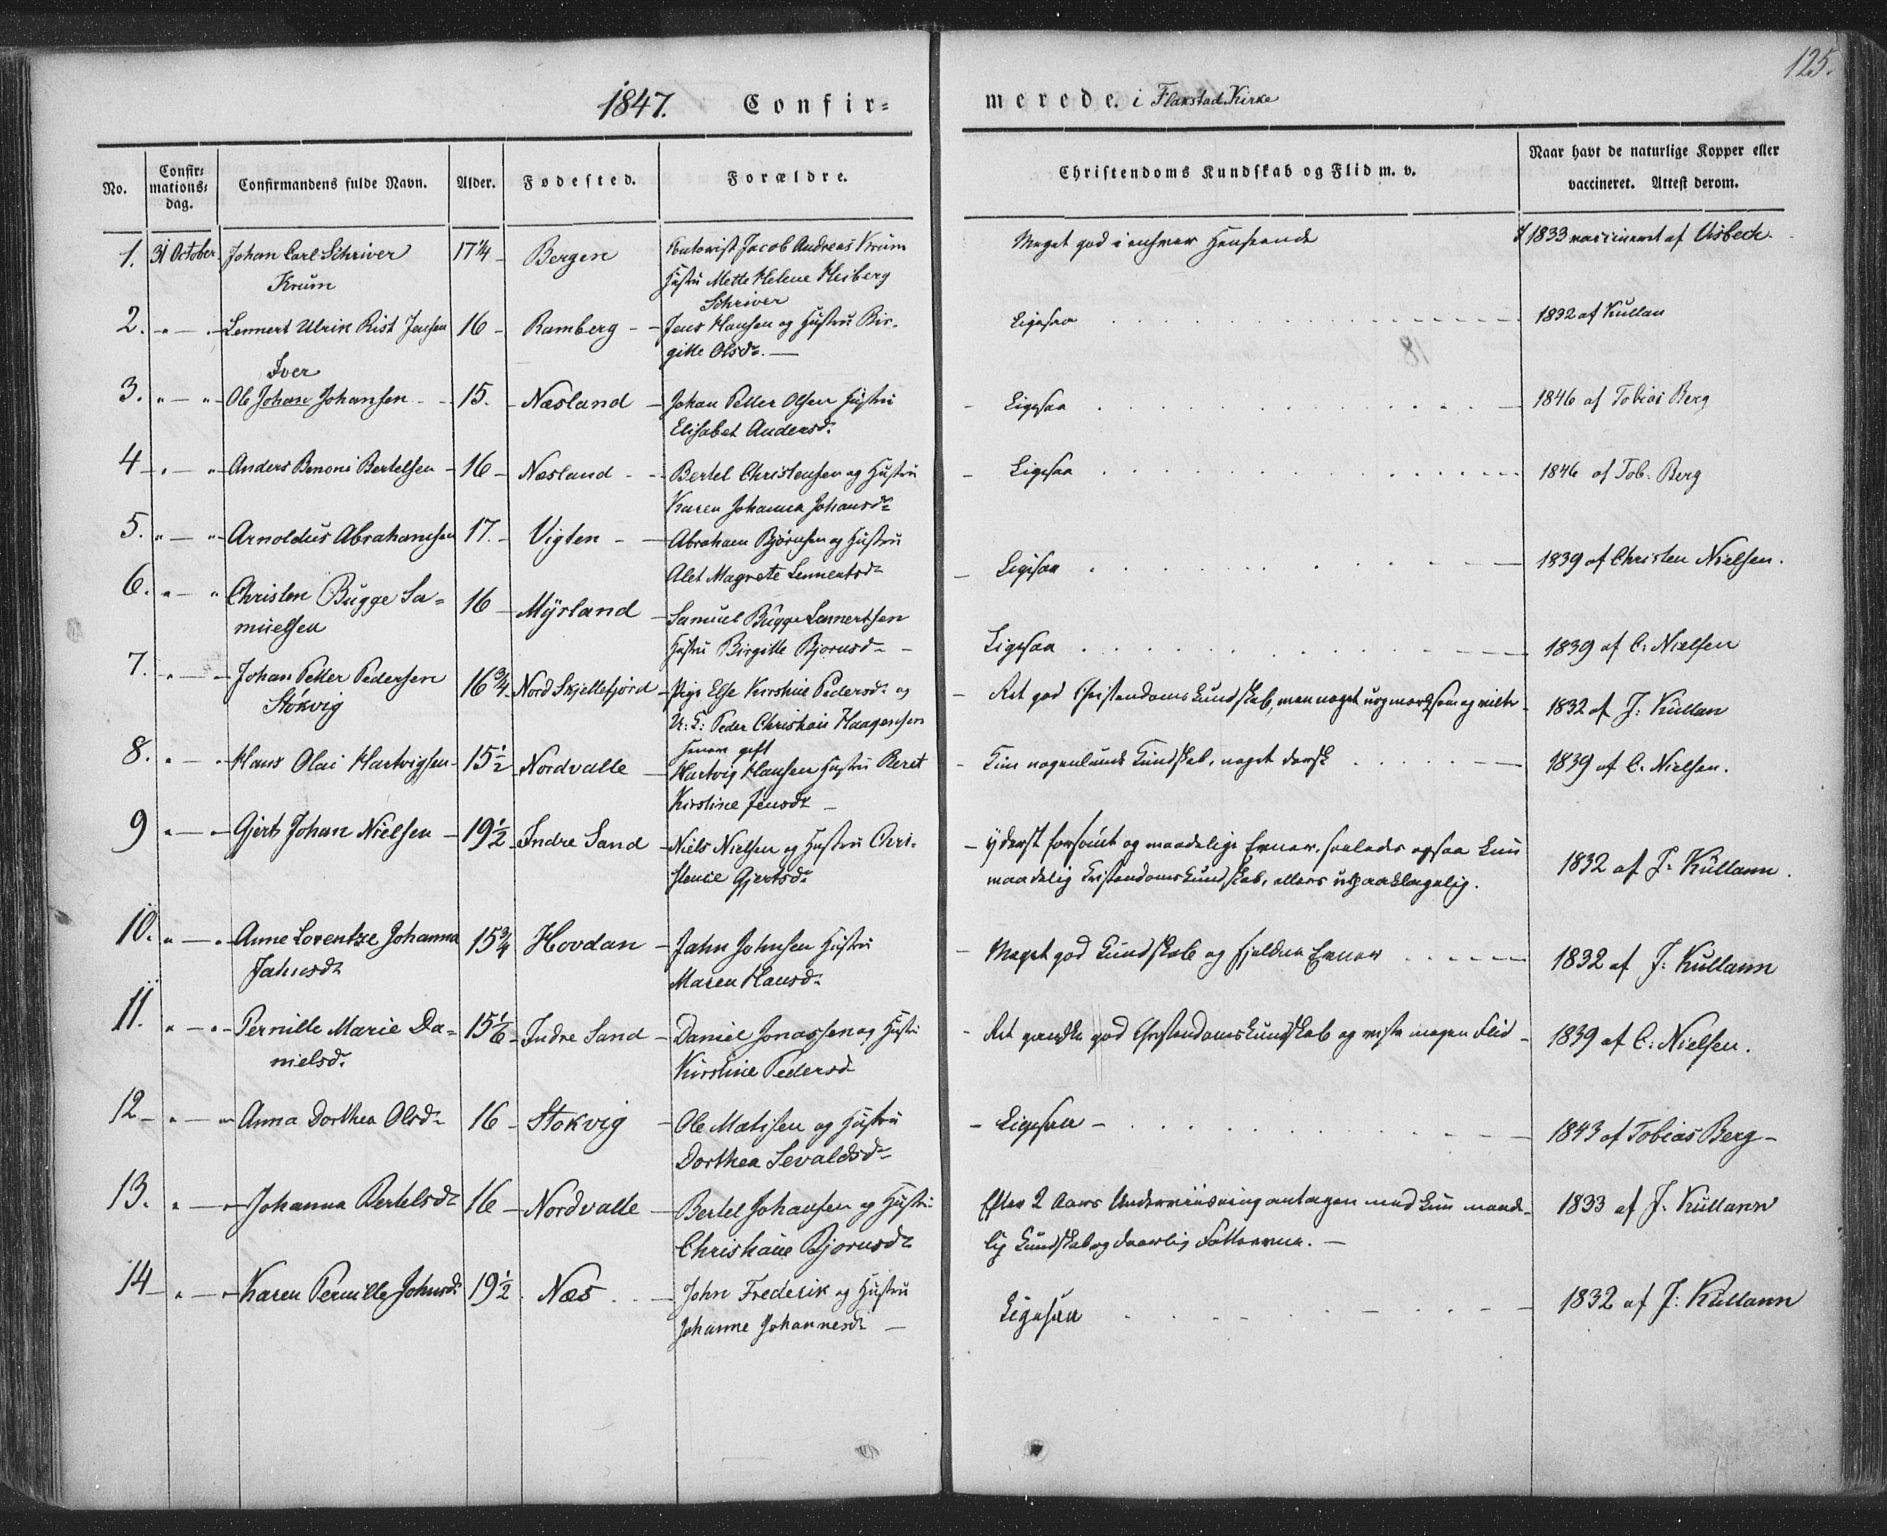 125.
1847. Confir= merede. i Flakstad Kirke
No.
Confir=
mations=
dag.
Confirmandens fulde Navn.
Alder.
Fødested.
Forældre.
Christendoms Kundskab og Flid m. v.
Naar havt de naturlige Kopper eller
vaccineret. Attest derom.
1. 31 October Johan Carl Schriver 17 1/4 - Bergen Kontorist Jacob Andreas Krum Meget god i enhver Henseende 1833 vaccineret af Visbech.
Krum Hustru Mette Helene Heiberg
Schriver
2. " — " - Lennert Ulrik Rist Jensen 16 - Ramberg - - Jens Hansen og Hustru Bir- Ligesaa 1832 af Kullan
gitte Olsd. —
Iver
3. " — " - Ole Johan Johansen - - 15. - Næsland - Johan Petter Olsen Hustru - Ligesaa 1846 af Tobias Berg
Elisabet Andersd.
4 - " — " - Anders Benoni Bertelsen - 16 - Næsland - - Bertel Christensen og Hustru - Ligesaa 1846 af Tob. Berg
Karen Johanna Johansd.
5. " — " - Arnoldus Abrahamsen 17. - Vigten - - Abraham Bjørnsen og Hustru - Ligesaa 1839 af Christen Nielsen.
Alet Magrete Lennertsd.
6. " — " Christen Bugge Sa= 16 - Myrland - Samuel Bugge Lennertsen Ligesaa 1839 af C. Nielsen
muelsen Hustru Birgitte Bjornsd. -
7. " — " - Johan Petter Pedersen 16 3/4 - Nord Skjellefjord - Pige Else Kirstine Pedersd. og - Ret god Christendoms Kundskab, men noget uopmærksom og 1832 af J. Kullan
Stokvig U: K: Peder Christian Haagensen
senere gift
8. " — " - Hans Olai Hartvigsen - 15 1/2 - Nordvalle - Hartvig Hansen Hustru Beret - Kun nogenlunde Kundskab, noget dorsk 1839 af C. Nielsen.
Kirstine Jensd. -
9 " — " - Gjert Johan Nielsen - 19 1/2 - Indre Sand - Niels Nielsen og Hustru Chri- - yderst forsømt og maadelige Evner, saaledes ogsaa kun 1832 af J. Kullann.
stence Gjertsd. maadelig Kristendomskundskab, ellers upaaklagelig.
10. " — " - Anne Lorentze Johanna 15 3/4 - Hovdan - Jahn Johnsen Hustru - Meget god Kundskab og sjeldne Evner 1832 af J. Kullann
Jahnsd. Maren Hansd.
11. " — " - Pernille Marie Da= 15 1/6 - Indre Sand - Daniel Jonassen og Hustru - Ret god Christendomskundskab og megen Flid - 1839 af C. Nielsen.
nielsd. Kirstine Pedersd
12 - " — " - Anna Dorthea Olsd. 16 - Stokvig - Ole Matisen og Hustru - Ligesaa - 1843 af Tobias Berg -
Dorthea Sevaldsd.
13. " — " - Johanna Bertelsd. 16 - Nordvalle - Bertel Johansen og Hustru Efter 2 Aars Underviisning antagen med kun maade- 1833 af J. Kullann
Christiane Bjornsd. lig Kundskab og daarlig Fatteevne. —
14 - " — " - Karen Pernille Johnsd. 19 1/2 - Næs - John Frederik og Hustru Ligesaa 1832 af J. Kullann
Johanne Johannesd. -